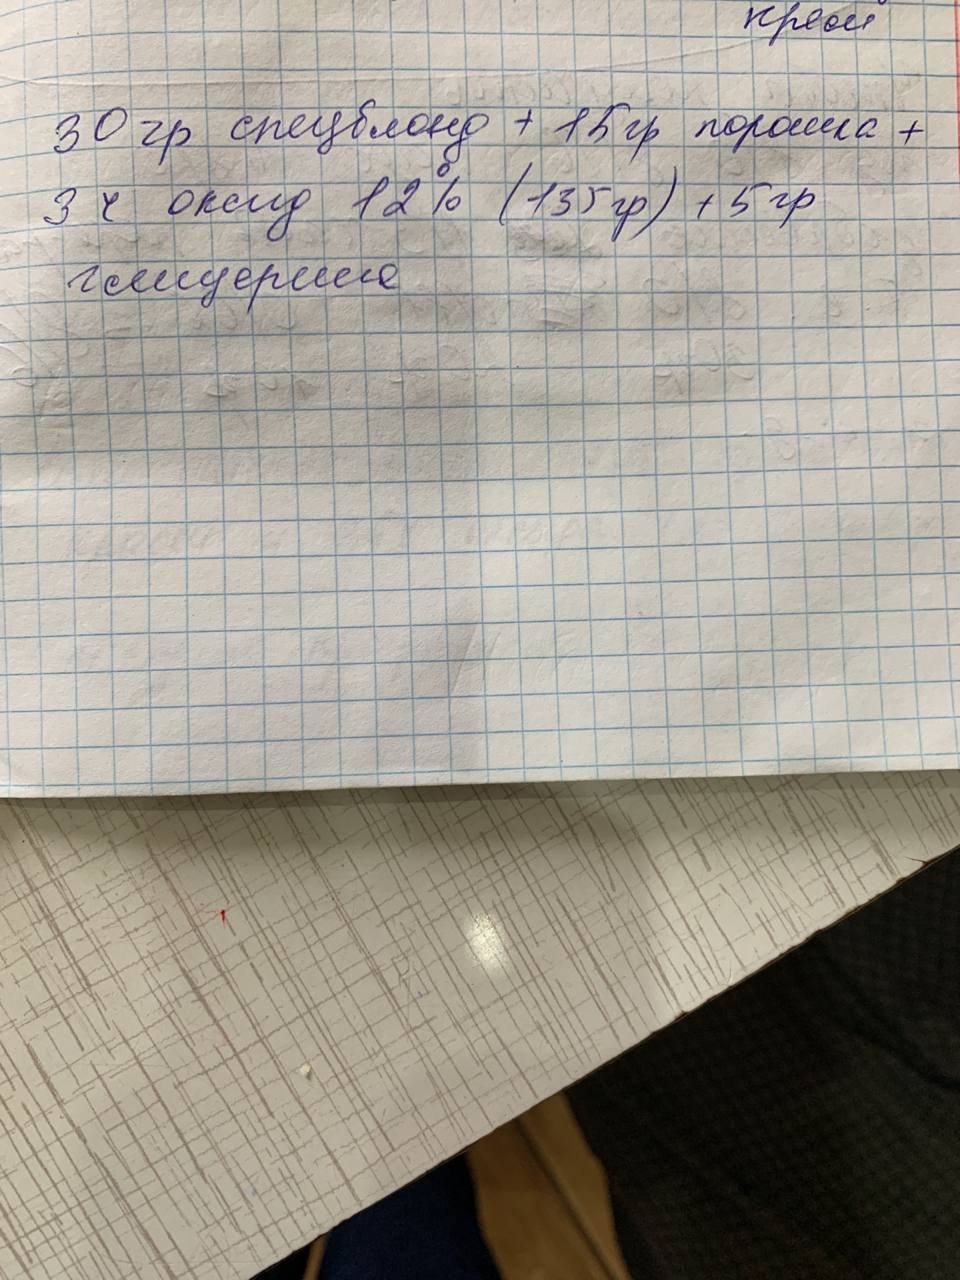 крем
30 гр спецблонд + 15 гр порошка +
3 ч оксид 12% (135 гр) + 5 гр
глицерина